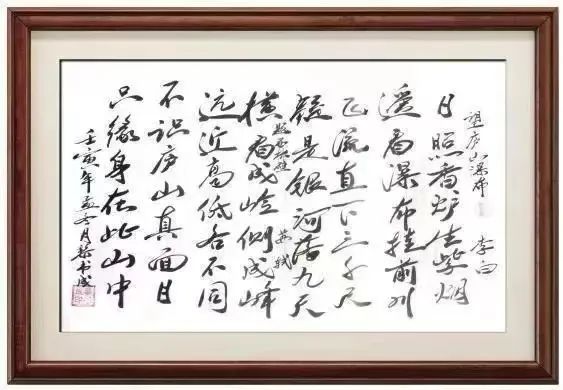 望庐山瀑布 李白
日照香炉生紫烟
遥看瀑布挂前川
飞流直下三千尺
疑是银河落九天
题西林壁 苏轼
横看成岭侧成峰
远近高低各不同
不识庐山真面目
只缘身在此山中
壬寅年孟冬月 书